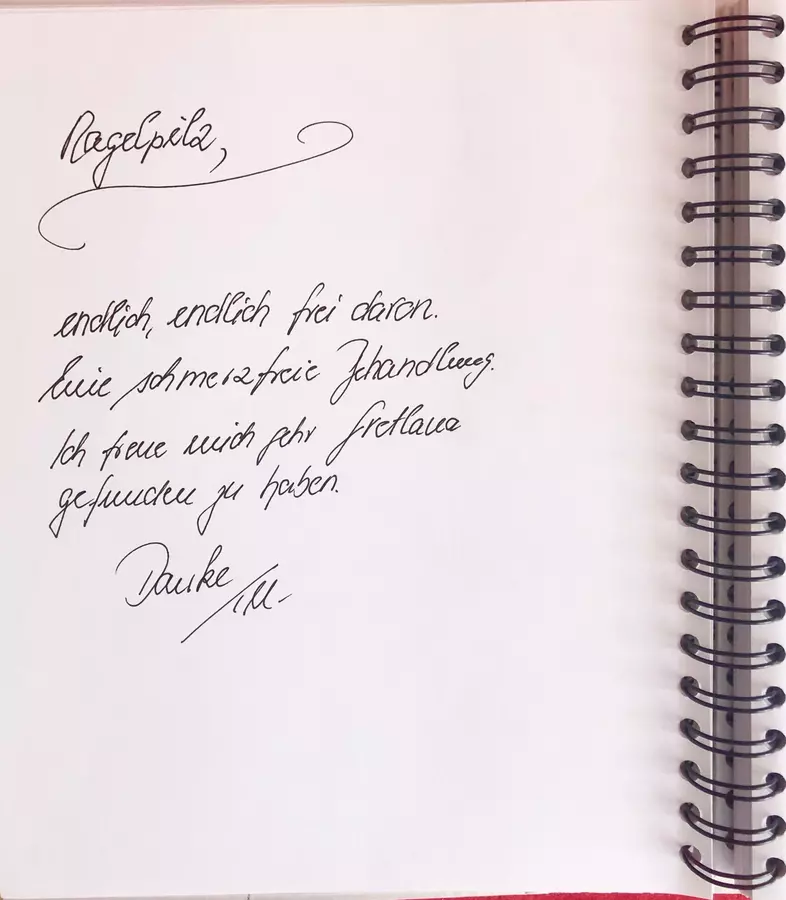 Nagelpilz,
endlich, endlich frei davon.
Eine schmerzfreie Behandlung.
Ich freue mich sehr Svetlana
gefunden zu haben.
Danke